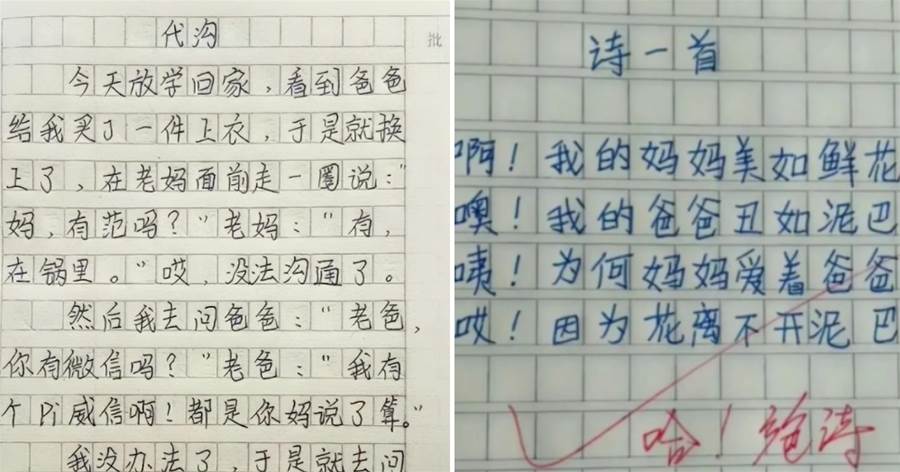 代沟
批
今天放学回家，看到爸爸
给我买了一件上衣，于是就换
上了，在老妈面前走一圈说："
妈，有范吗？"老妈："有，
在锅里。"哎，没法沟通了。
然后我去问爸爸："老爸，
你有微信吗？"老爸："我有
个Pi威信啊！都是你妈说了算。"
我没办法了，于是就去问
诗一首
啊！我的妈妈美如鲜花
噢！我的爸爸丑如泥巴
咦！为何妈妈爱着爸爸
哎！因为花离不开泥巴
哈！绝诗